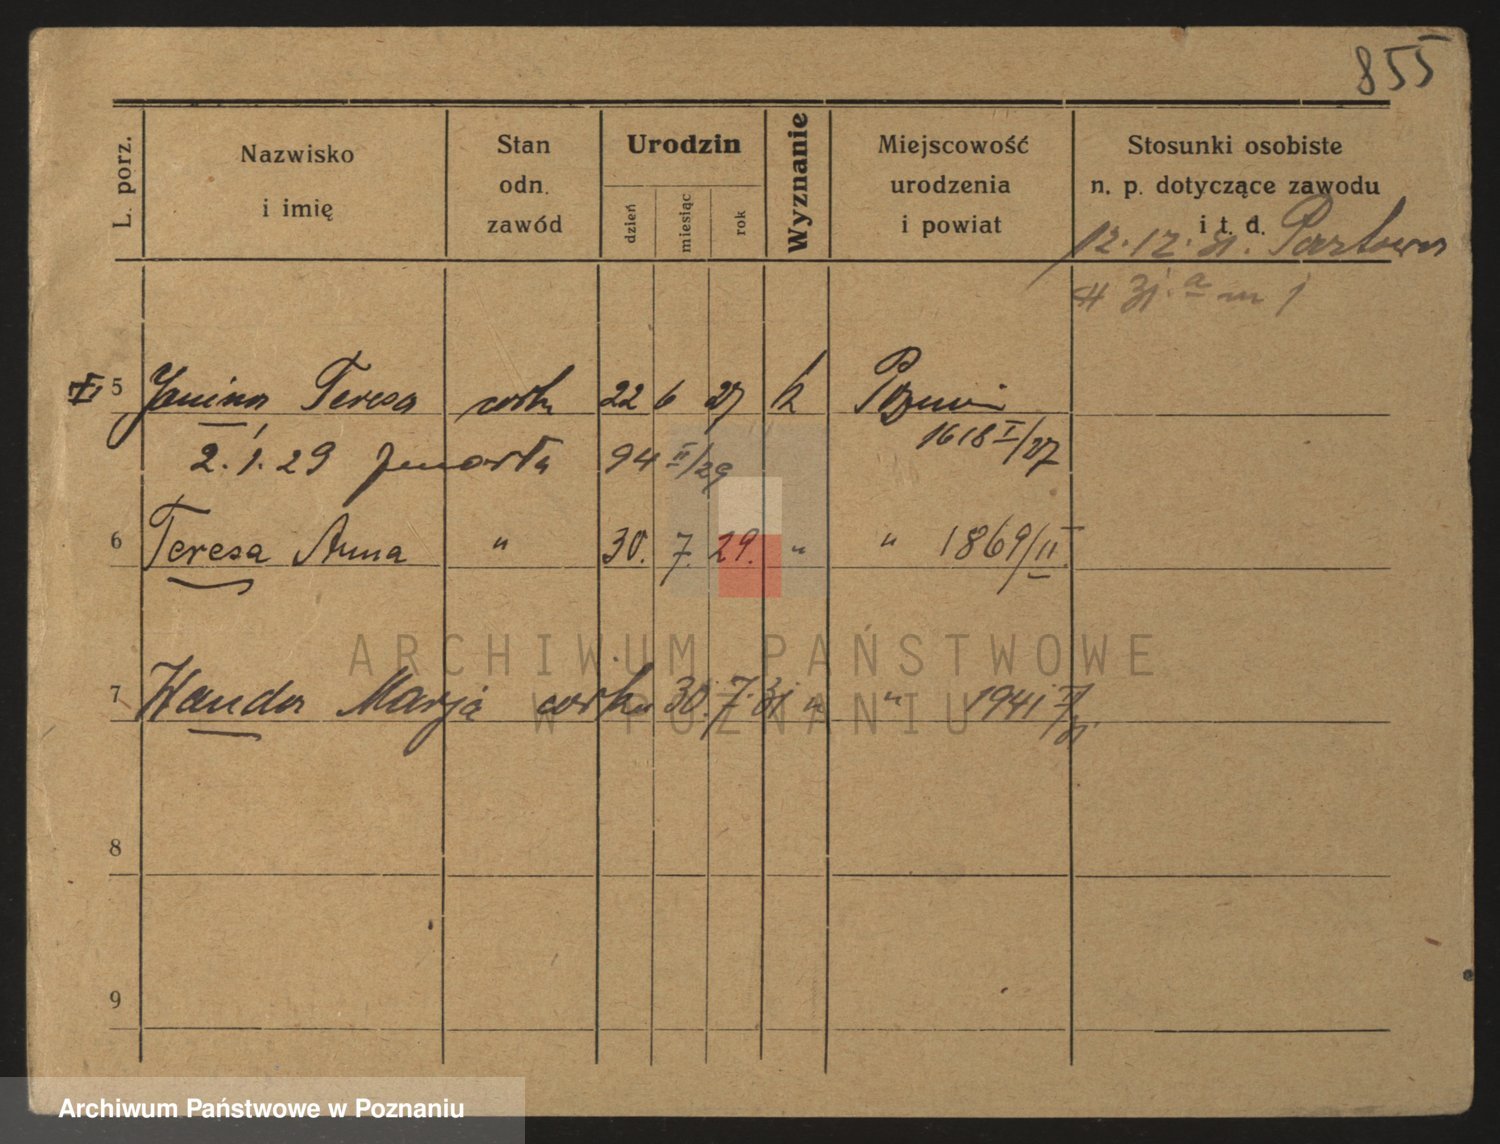 855
L. porz.
Nazwisko
i imię
Stan
odn.
zawód
Urodzin
dzień
miesiąc
rok
Wyznanie
Miejscowość
urodzenia
i powiat
Stosunki osobiste
n. p. dotyczące zawodu
i t. d.
12.12.31.
5 Janina Teresa córka 22 6 27 k
1618 I/27
2.1.29 zmarła 94 II/29
6 Teresa Anna " 30. 7. 29. " " 1869/II
7 Wanda Marja córka 30. 7. 31 " " 1941 II/31
8
9
ARCHIWUM PAŃSTWOWE
W POZNANIU
Archiwum Państwowe w Poznaniu